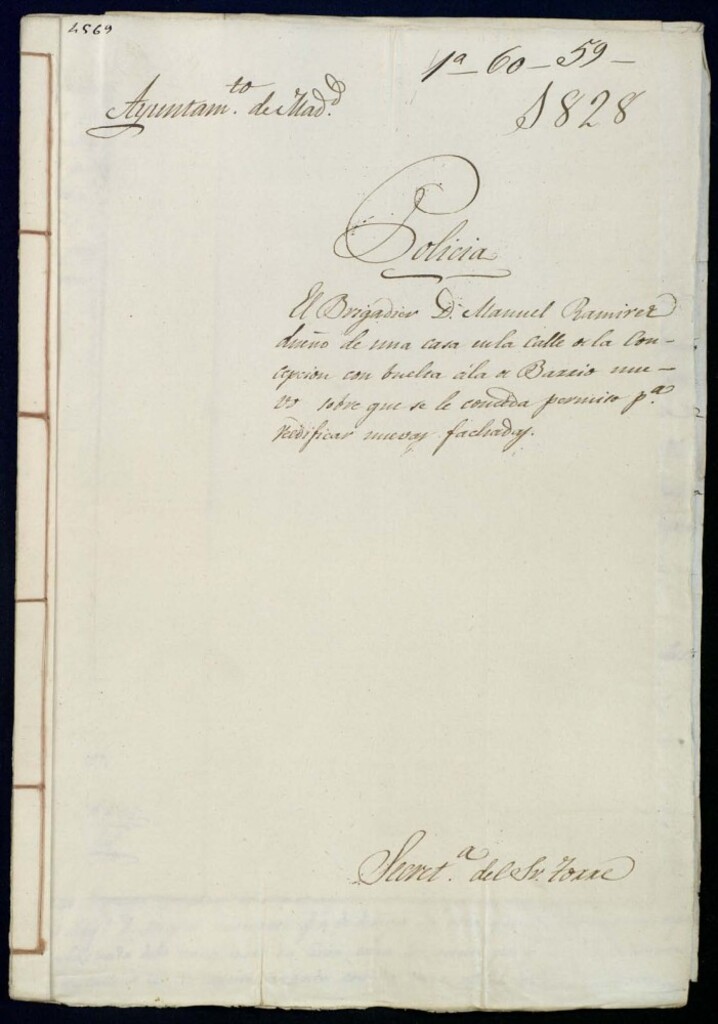 6957
1ª - 60 - 59 -
Ayuntam.to de Mad.d
1828
Policia
El Brigadier D. Manuel Ramirez
dueño de una casa en la Calle de la Con-
cepcion con buelta á la de Barrio nue-
vo sobre que se le conceda permiso p.ª
reedificar nuevas fachadas.
Secret.ª del Sr. Torre